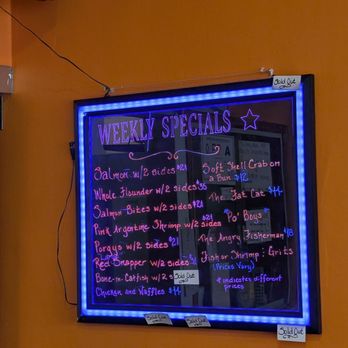 Sold Out
WEEKLY SPECIALS
Salmon w/2 sides $21
Whole Flounder w/2 sides $35
Salmon Bites w/2 sides $21
Pink Argentine Shrimp w/2 sides $21
Porgys w/2 sides $21
Red Snapper w/2 sides
Bone-in-Catfish w/2 Sold Out
Chicken and Waffles $14
Soft Shell Crab on
a Bun $12
The Fat Cat $14
Po' Boys
The Angry Fisherman $18
Fish or Shrimp & Grits
(Prices Vary)
* indicates different
prices
Sold Out